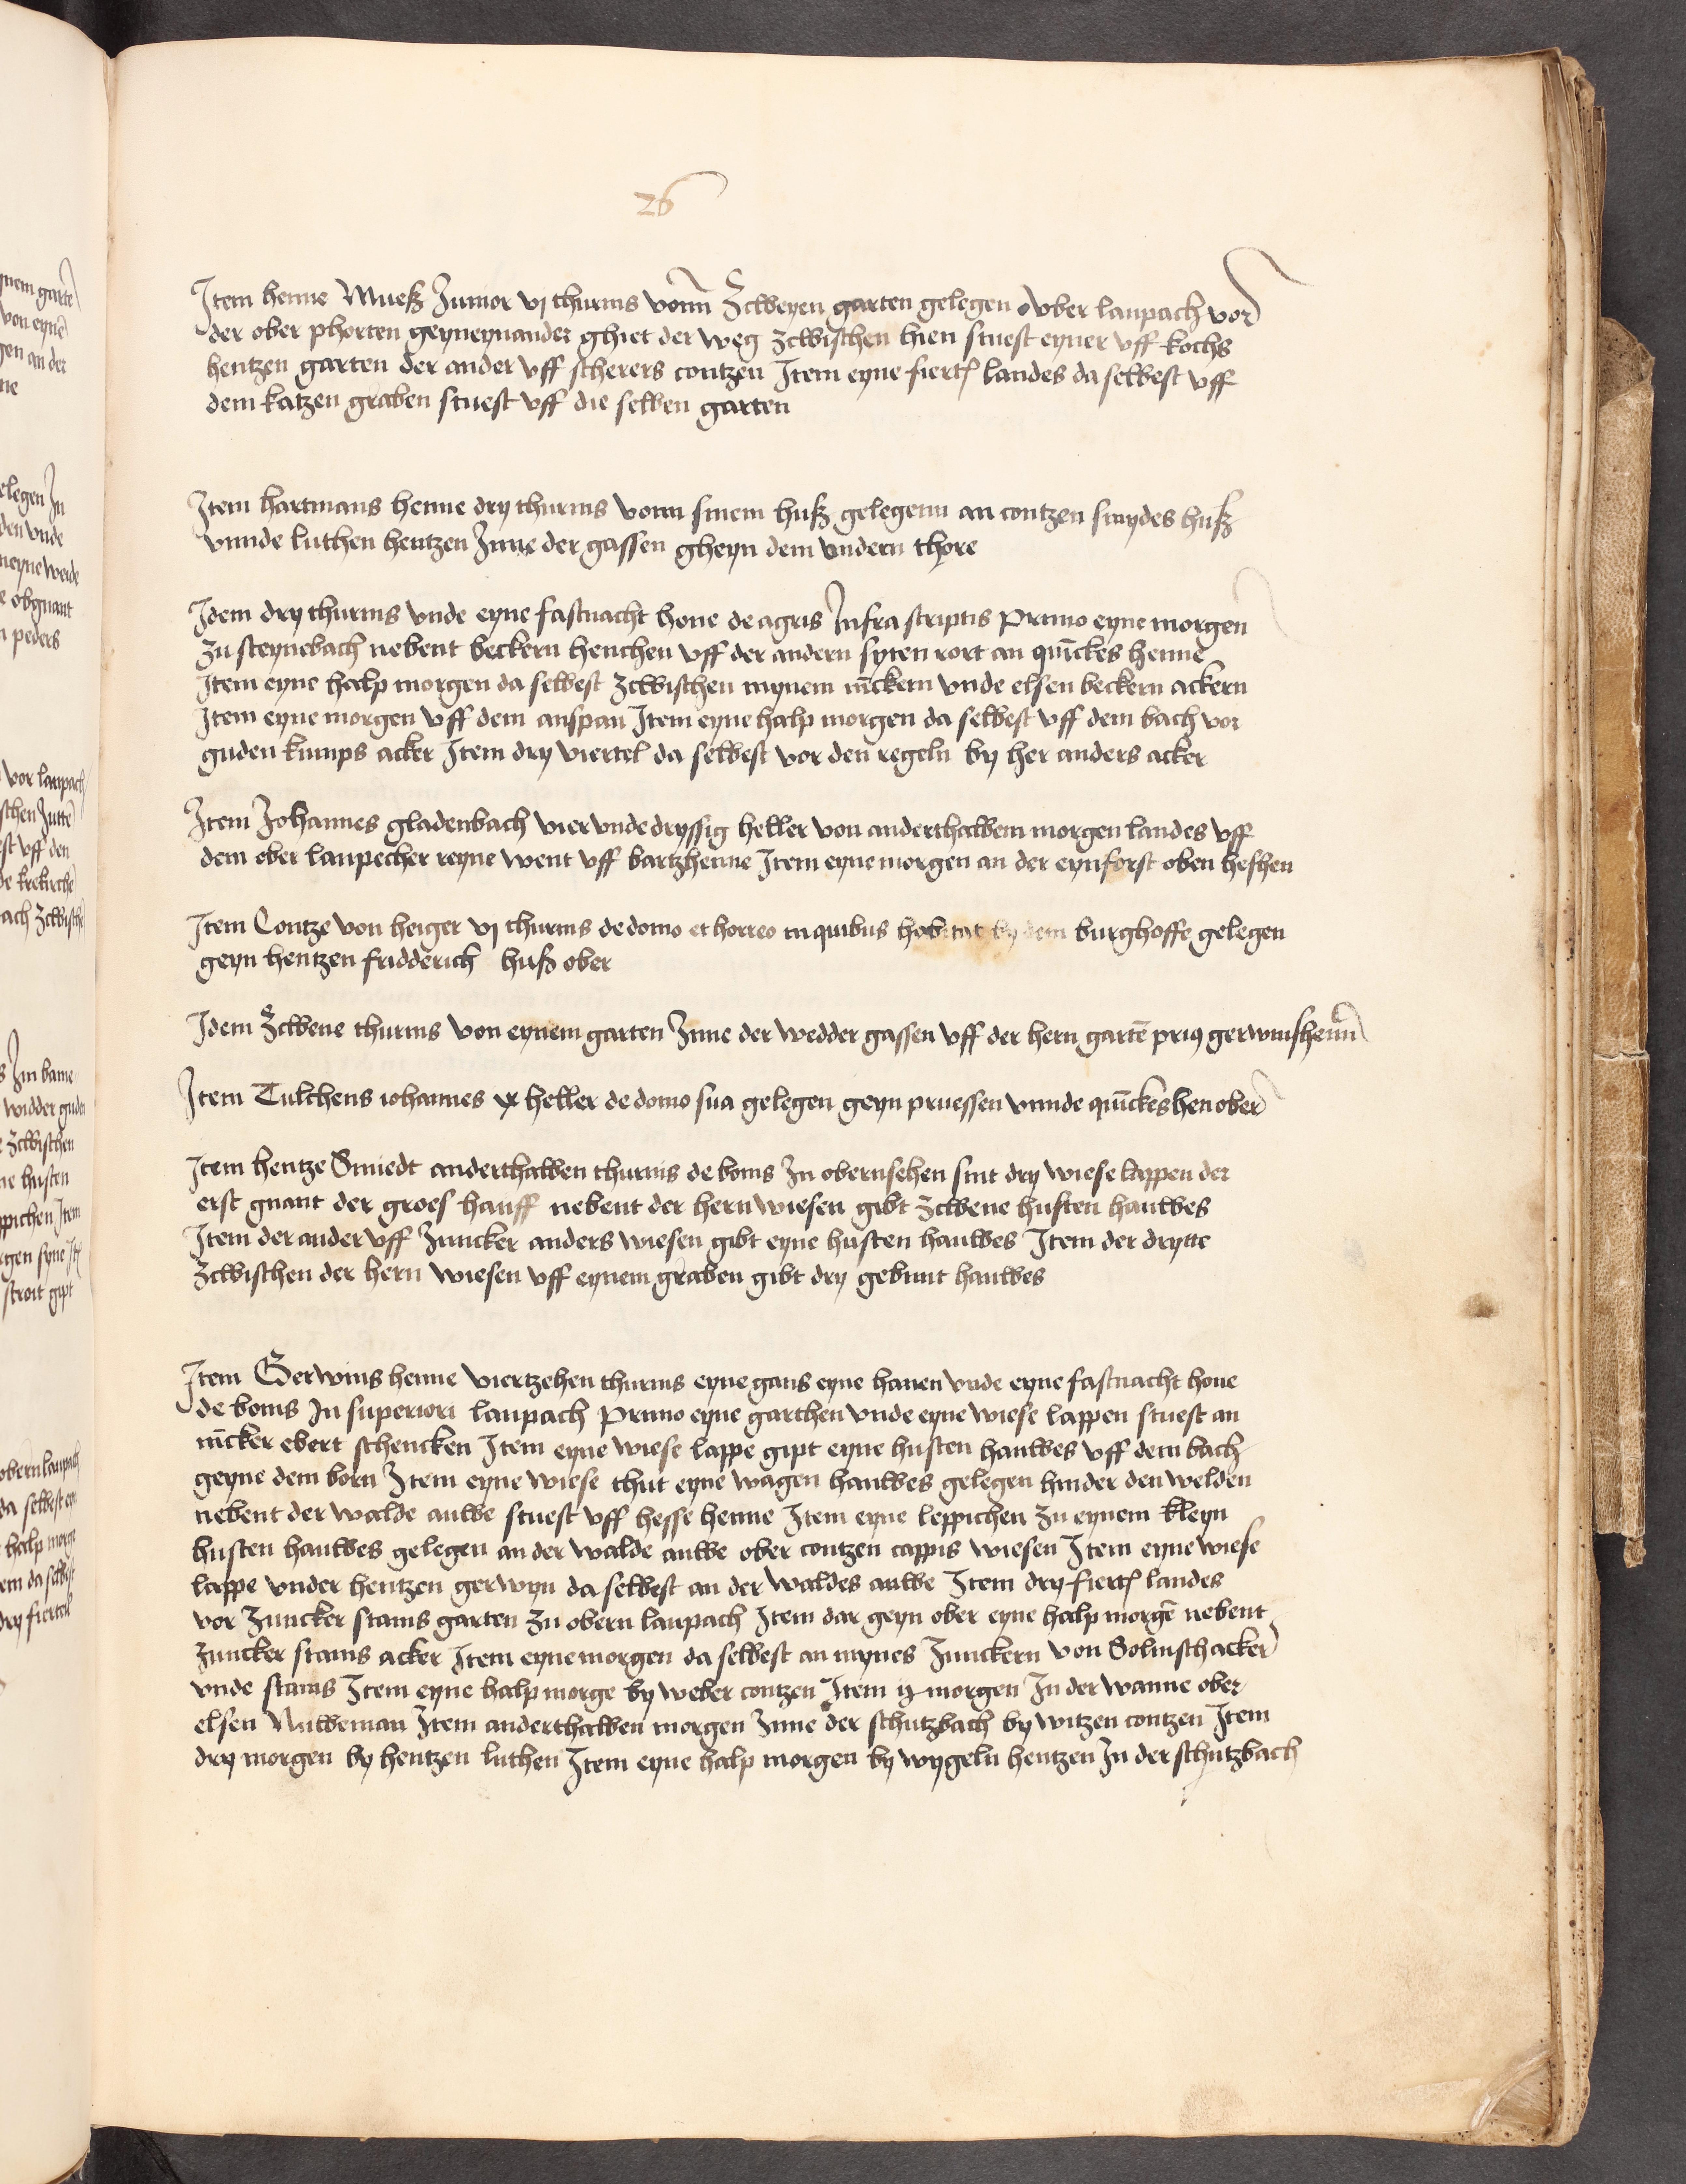 26
Item henne Mueß Junior vj thurnis vonn Zcweyen garten gelegen Ovber laupach vor
der ober phorten geyneynander ghiet der weg zcwischen hien stuest eyner vff kochs
hentzen garten der ander vff scherers contzen Item eyne fiert landes da selbest vff
dem katzen graben stuest vff die selben garten
Item hartmans henne dry thurnis vonn sinem huß gelegenn an contzen smydes huß
vnnde luthen hentzen Jnne der gassen gheyn dem vndern thore
Idem dry thurnis vnde eyne fastnacht hone de agris Infra scriptis Primo eyne morgen
zu steynebach nebent beckern henchen vff der andern syten rort an quīckes henne
Item eyne halp morgen da selbest zcwischen mynem jūckern vnde elsen beckern ackern
Item eyne morgen vff dem anspan Item eyne halp morgen da selbest vff dem bach vor
guden kumps acker Item dry viertel da selbest vor den regeln by her anders acker
Item Johannes gladenbach vier vnde dryssig heller von anderthalbem morgen landes vff
dem ober laupecher reyne went vff bartzhenne Item eyne morgen an der eynforst oben heschen
Item Contze von heiger vj thurnis de domo et horreo in quibus habitat by dem burghoffe gelegen
geyn hentzen fridderich huß ober
Idem Zcwene thurnis von eynem garten Jnne der wedder gassen vff der hern gartē prius gerwinshenn
Item Culchens iohannes xv heller de domo sua gelegen geyn pruessen vnnde quīckes hen ober
Item hentze Smiedt anderthalben thurnis de bonis Jn obernsehen sint dry wiese lappen der
erst gnant der groes hauff nebent der hern wiesen gibt zcwene husten hauwes
Item der ander vff Juncker anders wiesen gibt eyne husten hauwes Item der drytte
zcwischen der hern wiesen vff eynem graben gibt dry gebunt hauwes
Item Gerwins henne viertzehen thurnis eyne gans eyne hanen vnde eyne fastnacht hone
de bonis Jn superiori laupach Primo eyne garthen vnde eyne wiese lappen stuest an
jūcker ebert schencken Item eyne wiese lappe gipt eyne husten hauwes vff dem bach
geyne dem born Item eyne wiese thut eyne wagen hauwes gelegen hinder den welden
nebent der walde auwe stuest vff hesse henne Item eyne leppichen zu eynem kleyn
husten hauwes gelegen an der walde auwe ober contzen cappus wiesen Item eyne wiese
lappe vnder hentzen gerwyn da selbest an der waldes auwe Item dry fiert landes
vor Juncker stams garten zu obern laupach Item dar geyn ober eyne halp morgē nebent
Juncker stams acker Item eyne morgen da selbest an mynes Junckern von Solmsch acker
vnde stams Item eyne halp morge by weber contzen Item ij morgen Jn der wanne ober
elsen Nuweman Item anderthalben morgen Jnne der schutzbach by witzen contzen Item
dry morgen by hentzen luthen Item eyne halp morgen by wygeln hentzen Jn der schutzbach